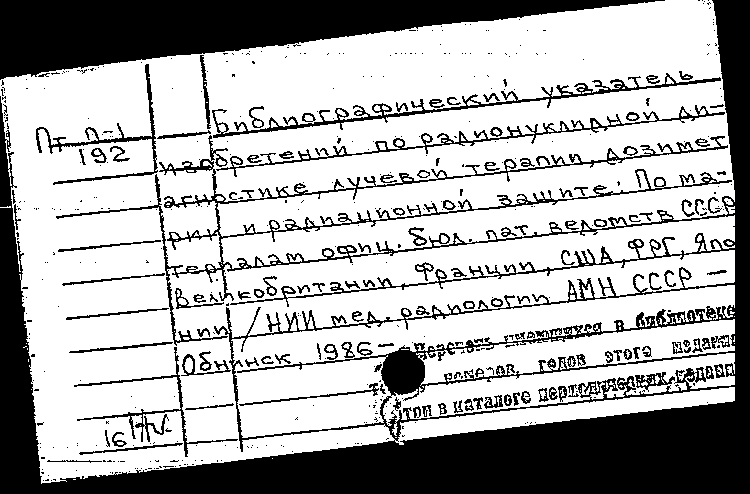 Пт П-1
192
Библиографический указатель
изобретений по радионуклидной ди-
агностике, лучевой терапии, дозимет
рии и радиационной защите: По ма-
териалам офиц. бюл. пат. ведомств СССР
Великобритании, Франции, США, ФРГ, Япо
нии / НИИ мед. радиологии АМН СССР –
Обнинск, 1986 –
Перечень имеющихся в библиотеке
номеров, годов этого издания
в каталоге периодических издани
16